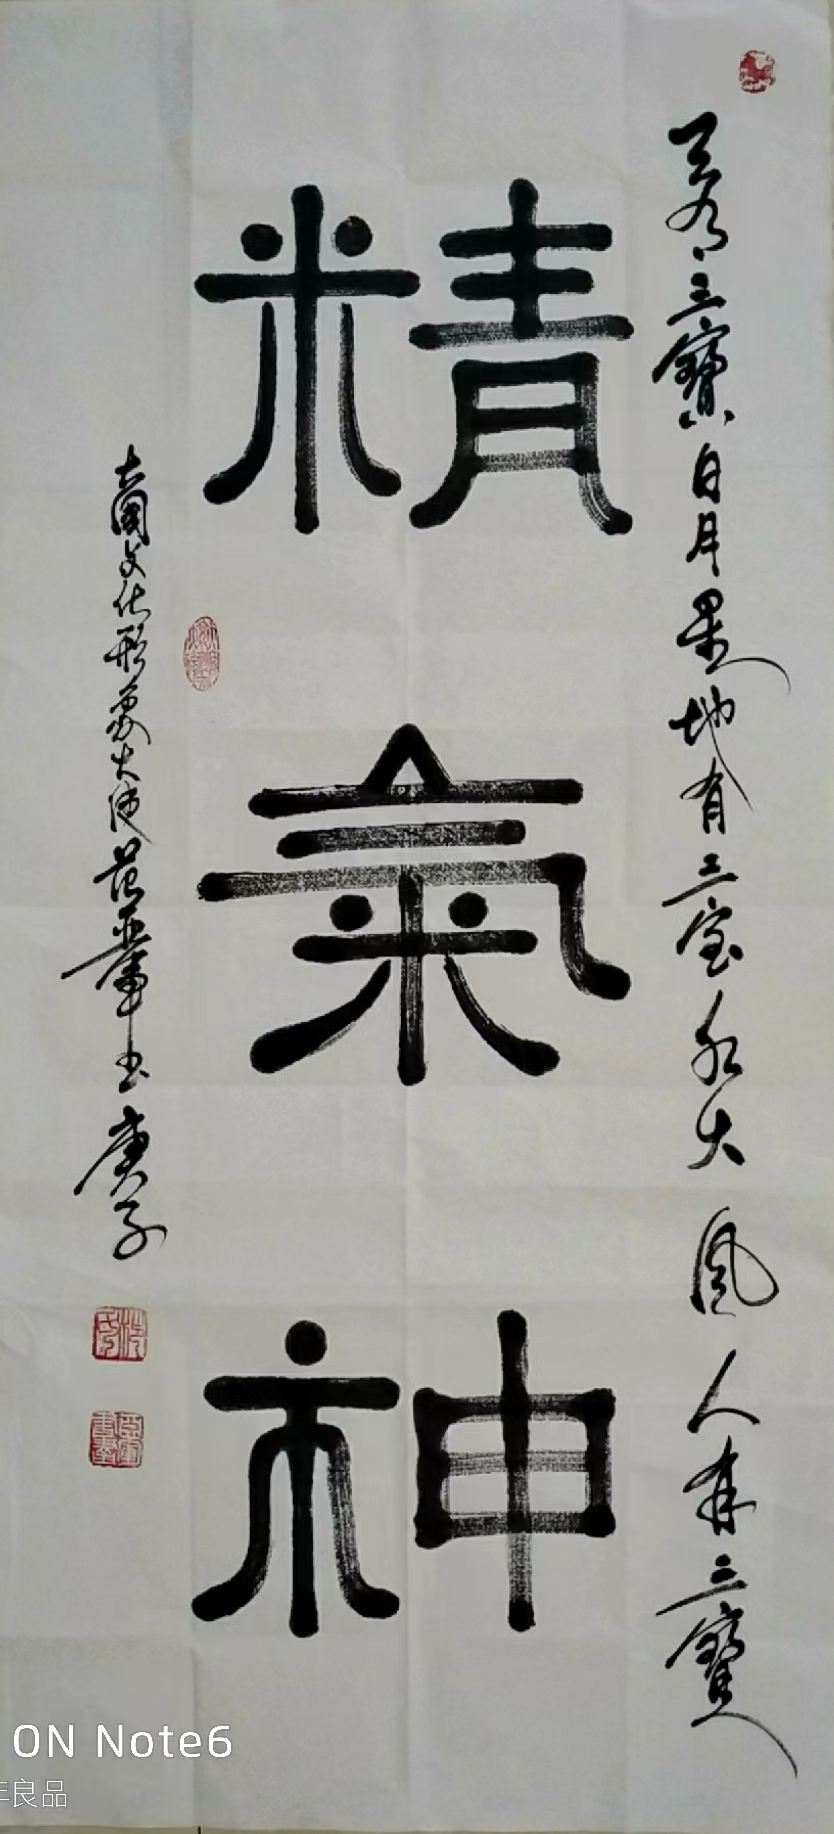 天有三寶日月星地有三宝水火風人有三寶
精氣神
文化形象大使范亚军书庚子
ON Note6
年良品